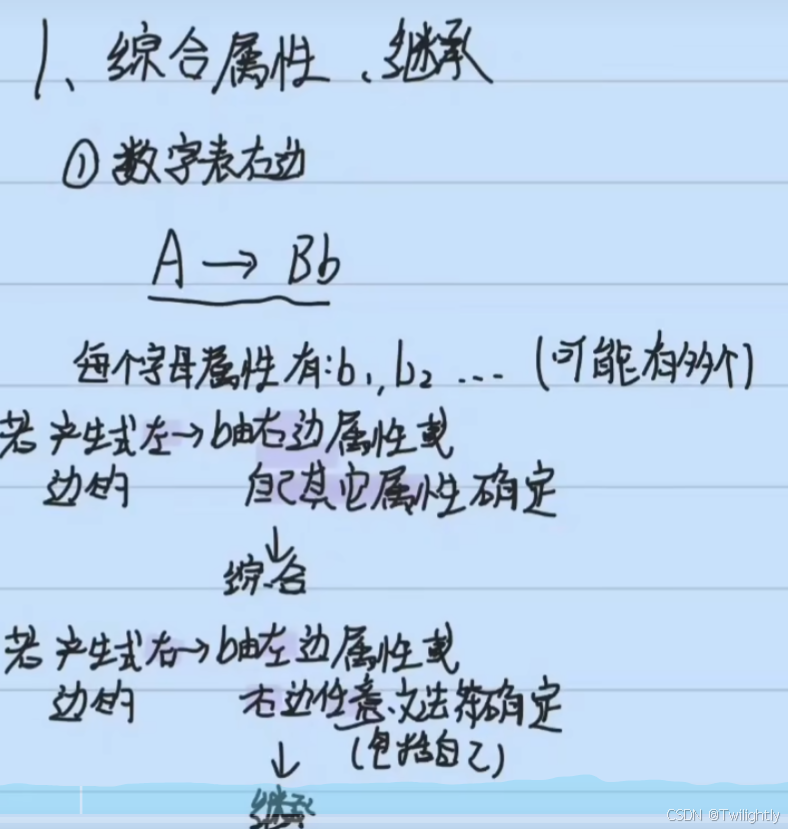 1、综合属性、继承
① 数字表右边
A → Bb
每个字母属性有:b₁,b₂ ... (可能有多个)
若产生式左→b由右边属性或
边的 自己其它属性确定
↓
综合
若产生式右→b由左边属性或
边的 右边任意文法符确定
↓ (包括自己)
继承
CSDN @Twilightly